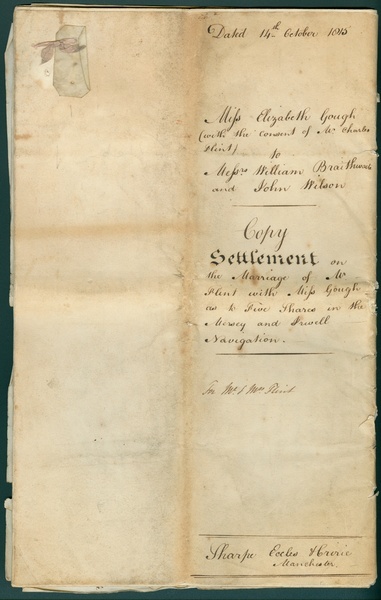 Dated 14th October 1815
Miss Elizabeth Gough
(with the consent of Mr Charles
Flint)
to
Messrs William Braithwaite
and John Wilson
Copy
Settlement on
the Marriage of Mr
Flint with Miss Gough
as to Five Shares in the
Mersey and Irwell
Navigation.
For Mr & Mrs Flint
Sharpe Eccles &
Manchester.